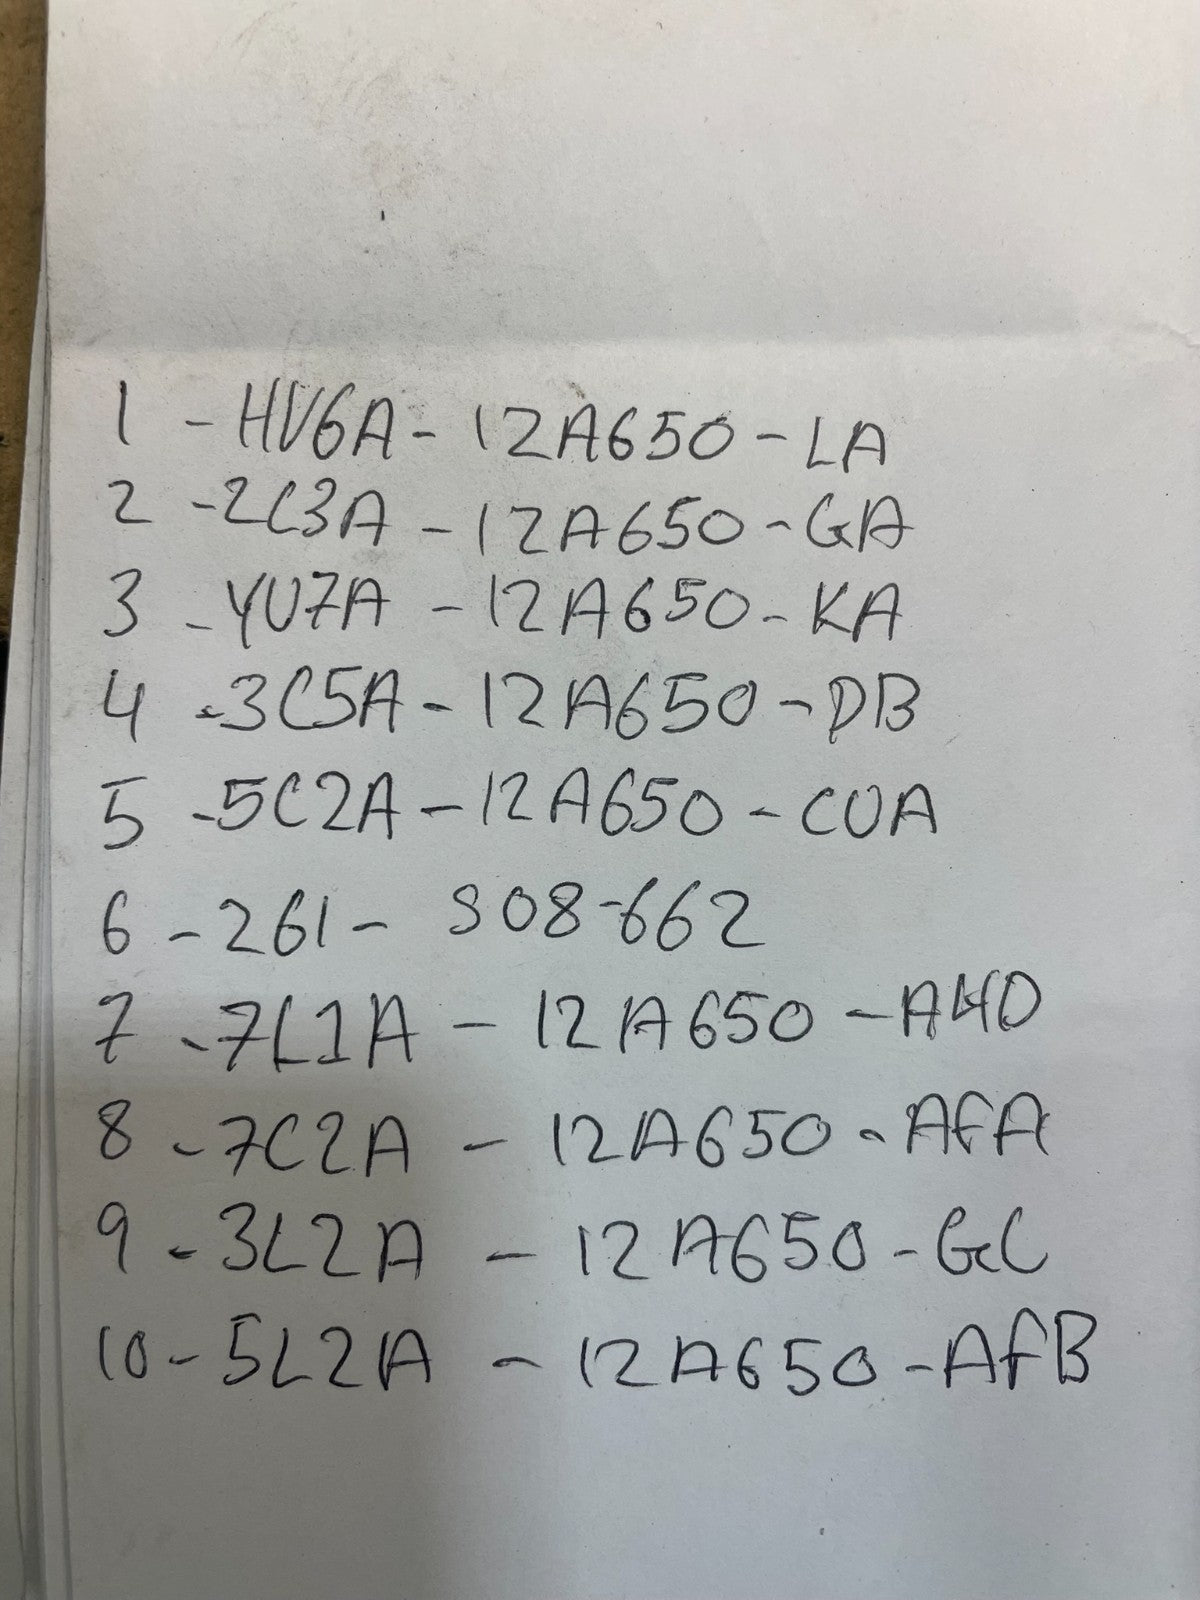 1 - HV6A - 12A650 - LA
2 - 2C3A - 12A650 - GA
3 - YU7A - 12A650 - KA
4 - 3C5A - 12A650 - DB
5 - 5C2A - 12A650 - CUA
6 - 261 - S08-662
7 - 7L1A - 12A650 - AHD
8 - 7C2A - 12A650 - AFA
9 - 3L2A - 12A650 - GC
10 - 5L2A - 12A650 - AFB